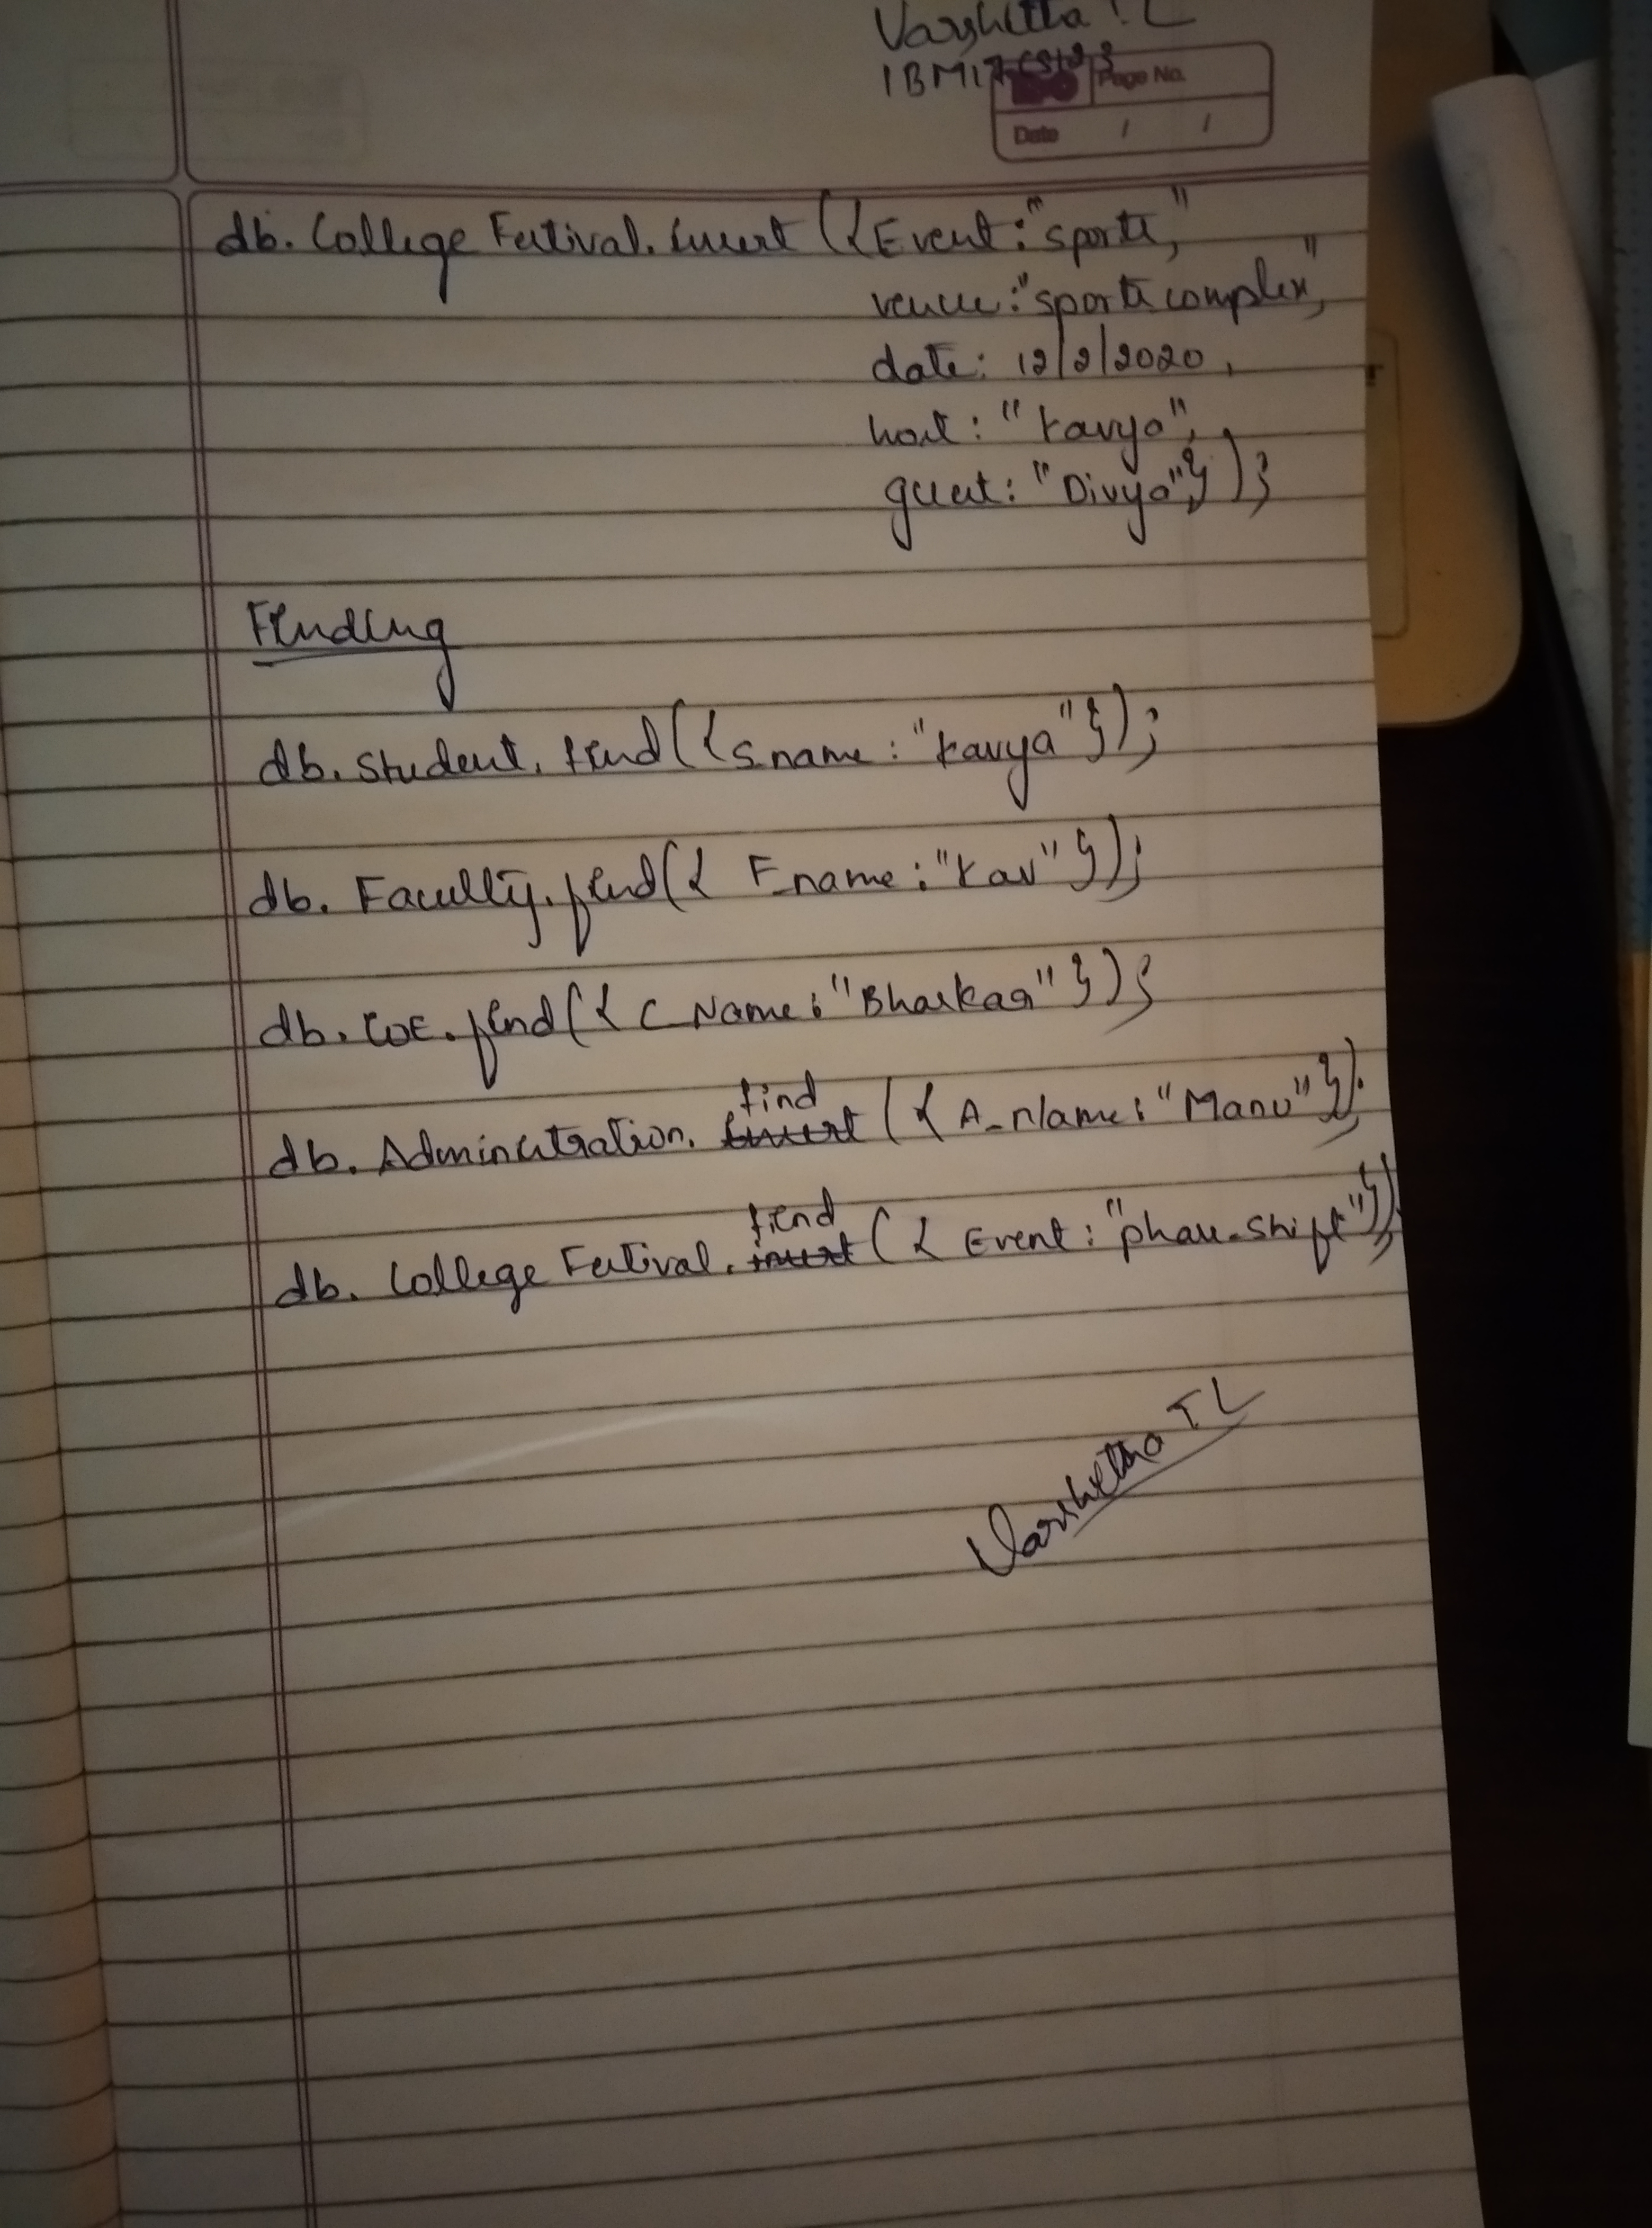 Varshitha T L
1BM17CS123
Page No.
Date / /
db. College Festival. insert ({Event: "sports",
venue: "sports complex",
date: 12/2/2020,
host: "Kavya",
guest: "Divya"});
Finding
db. Student. find ({S_name: "Kavya"});
db. Faculty. find ({ F_name: "Kav" });
db. COE. find ({ C_Name: "Bhaskar" });
find
db. Administration. insert ({ A_Name: "Manu"});
find
db. College Festival. insert ({ Event: "phase_shift"});
Varshitha T L